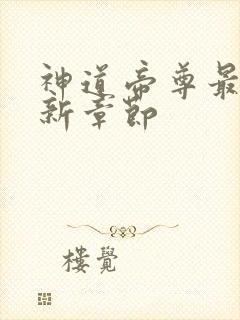 神道帝尊最
新章節
樓覺